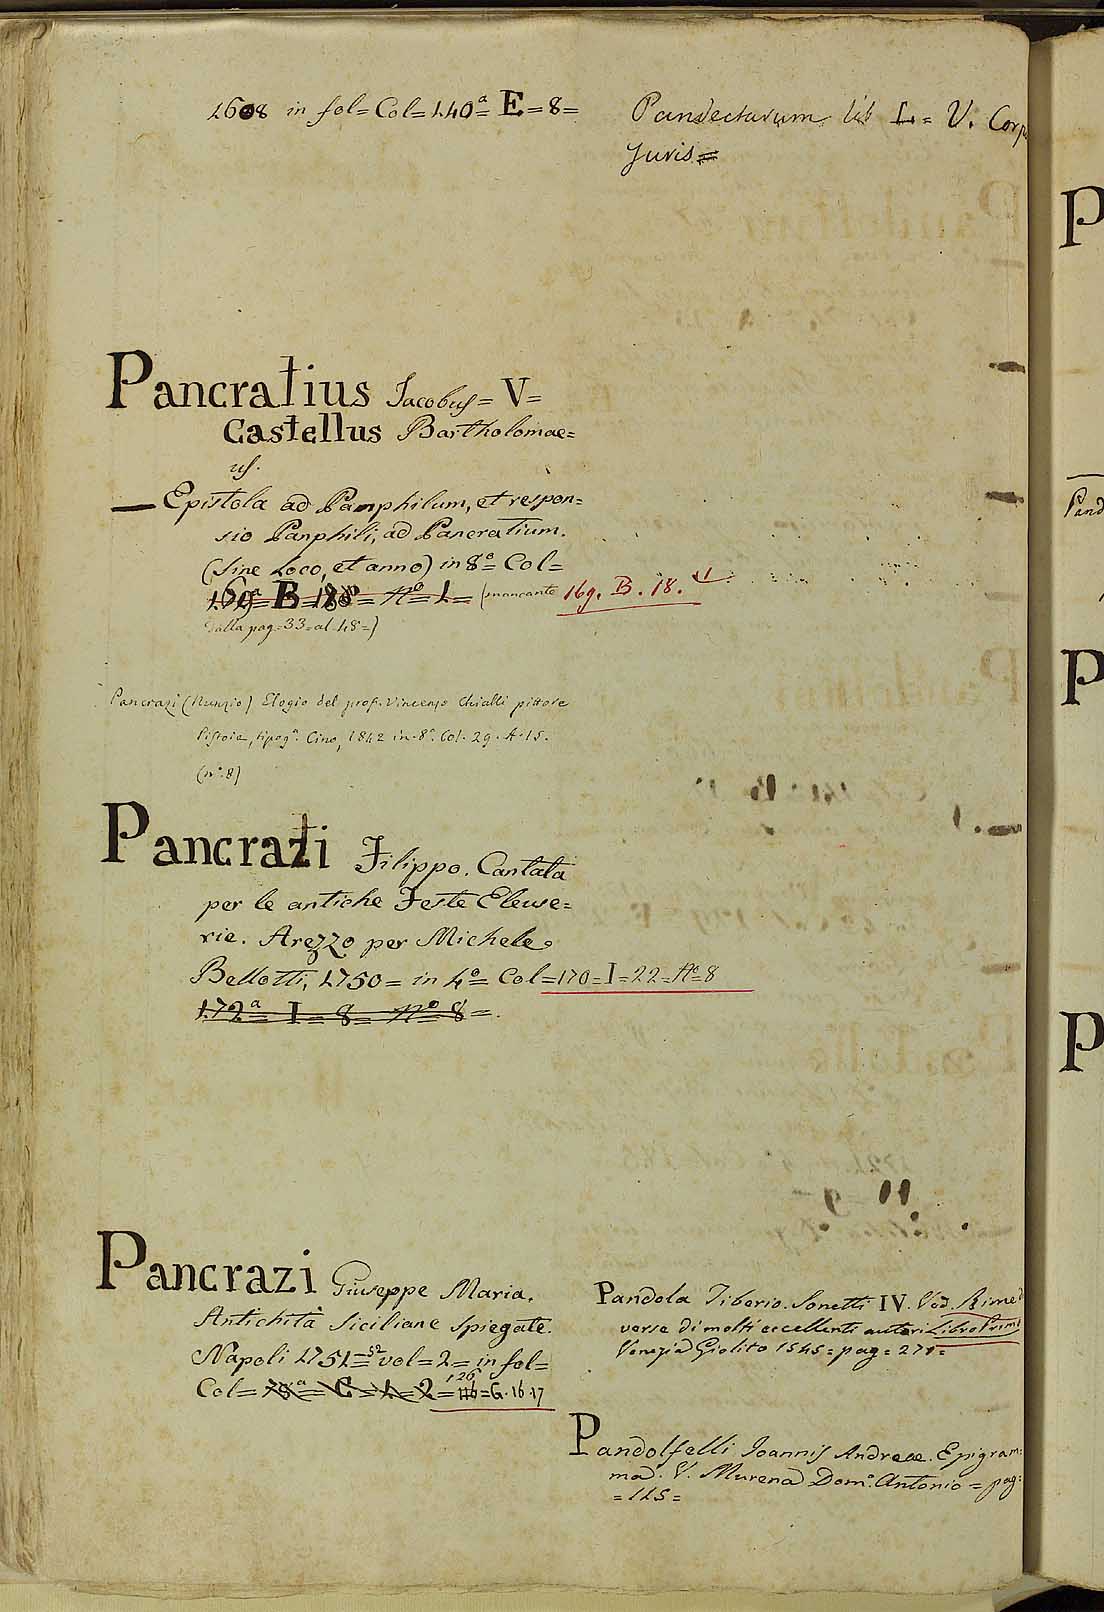 1608 in fol= Col= 140ª= E=8=
Pancratius Jacobus= V=
Castellus Bartholomae=
us.
— Epistola ad Pamphilum, et respon=
sio Panphili, ad Pancratium.
(Sine Loco, et anno) in 8º= Col=
169ª= B= 18 = Nº= 1= (mancante 169. B. 18.
dalla pag=33=al=48=)
Pancrazi (Nunzio) Elogio del prof. Vincenzo Chialli pittore
Pistoia, tipogª. Cino, 1842 in-8º. Col. 29. A. 15.
(nº.8)
Pancrazi Filippo. Cantata
per le antiche Feste Eleuse=
rie. Arezzo per Michele
Bellotti, 1750= in 4º= Col=170=I=22=Nº=8
172ª= I= 8= Nº=8=.
Pancrazi Giuseppe Maria.
Antichità Siciliane Spiegate.
Napoli 1751=52 vol=2=in fol=
Col= 78ª= C= 1=2= 126 =G.16.17
Pandectarum lib L= V. Corp
Juris=
Pandola Tiberio. Sonetti IV. Ved. Rime d
verse di molti eccellenti autori Libro Primo
Venezia Giolito 1545= pag= 271=
Pandolfelli Joannis Andreae. Epigram:
ma. V. Murena Domº. Antonio= pag:
=115=
P
Pand
P
P